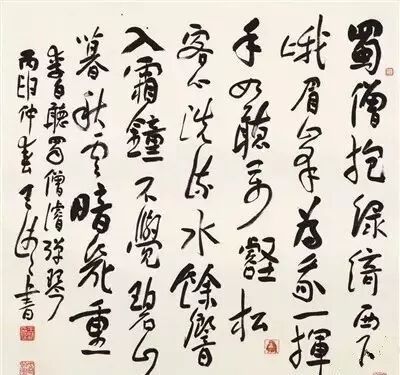 蜀僧抱綠綺西下
峨眉峰為我一揮
手如聽萬壑松
客心洗流水餘響
入霜鐘不覺碧山
暮秋雲暗幾重
李白聽蜀僧濬彈琴
丙申仲春 書